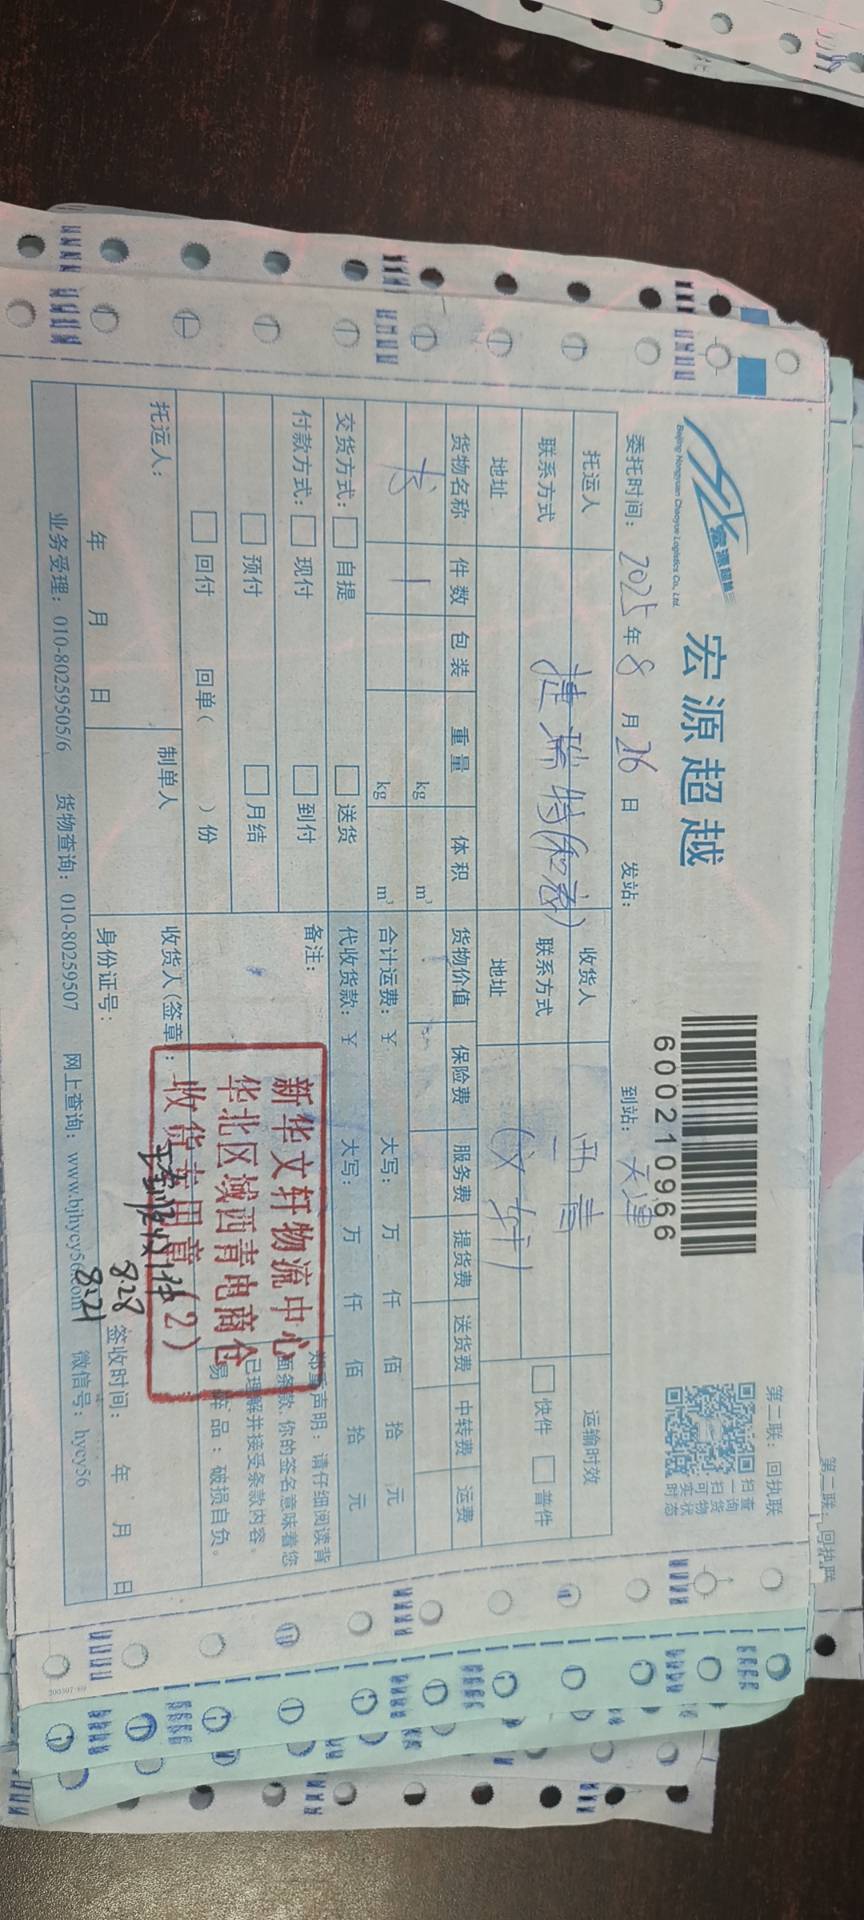 第二联：回执联
第二联：回执联
宏源超越
Beijing Hongyuan Chaoyue Logistics Co., Ltd.
宏源超越
600210966
扫一扫 可查询货物实时状态
委托时间：2025年8月26日 发站： 到站：天津
托运人 捷瑞特(和谐) 收货人 西青 运输时效
联系方式 联系方式 快件 普件
地址 地址 (文轩)
货物名称 件数 包装 重量 体积 货物价值 保险费 服务费 提货费 送货费 中转费 运费
书 1 kg m³
kg m³ 合计运费：￥ 大写： 万 仟 佰 拾 元
交货方式： 自提 送货 代收货款：￥ 大写： 万 仟 佰 拾 元
付款方式： 现付 到付 备注：
预付 月结
回付 回单( )份
郑重声明：请仔细阅读背
面条款，你的签名意味着您
已理解并接受条款内容。
易碎品：破损自负。
新华文轩物流中心
华北区域西青电商仓
收货专用章(2)
托运人： 制单人 收货人(签章)：
8.28
8.21
年 月 日 身份证号： 签收时间： 年 月 日
业务受理：010-80259505/6 货物查询：010-80259507 网上查询：www.bjhycy56.com 微信号：hycy56